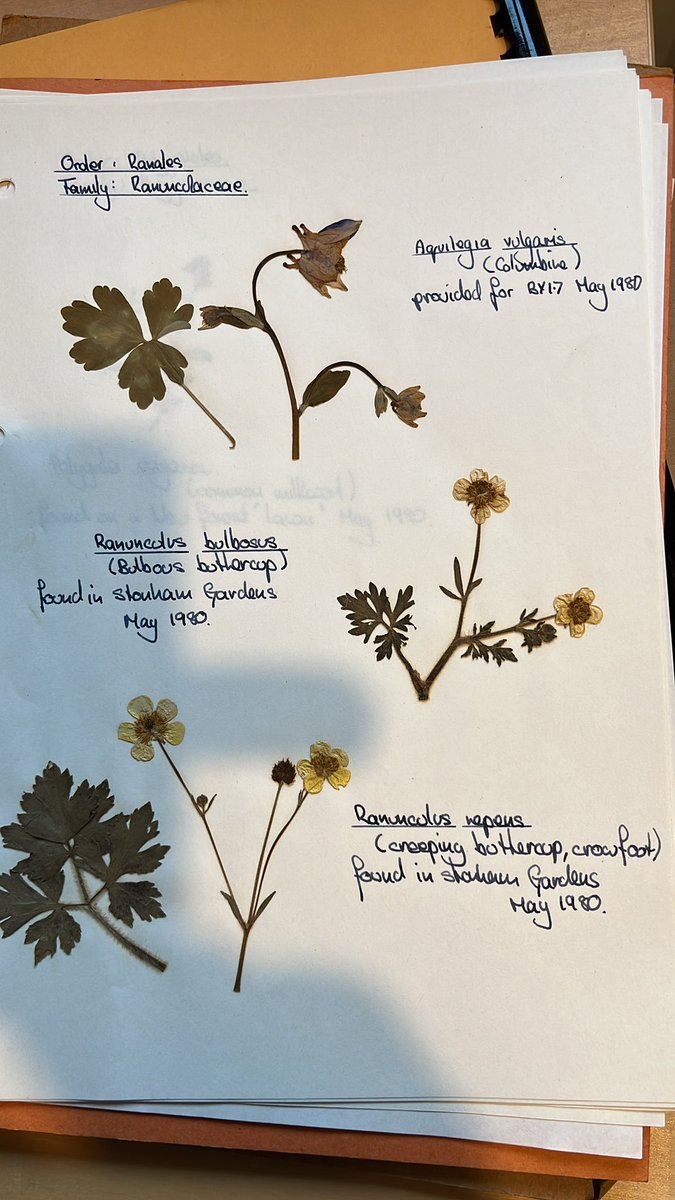 Order: Ranales
Family: Ranunculaceae.
Aquilegia vulgaris
(Columbine)
provided for BX17 May 1980
Ranunculus bulbosus
(Bulbous buttercup)
found in Stonham Gardens
May 1980.
Ranunculus repens
(creeping buttercup, crowfoot)
found in Stonham Gardens
May 1980.